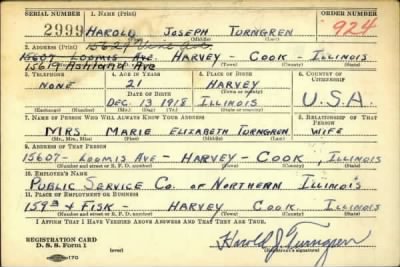 SERIAL NUMBER 1. NAME (Print) ORDER NUMBER
2999 HAROLD JOSEPH TURNGREN 924
(First) (Middle) (Last)
2. ADDRESS (Print)
15607 LOOMIS AVE. HARVEY - COOK - ILLINOIS
15619 ASHLAND AVE
3. TELEPHONE 4. AGE IN YEARS 5. PLACE OF BIRTH 6. COUNTRY OF CITIZENSHIP
NONE 21 HARVEY
DATE OF BIRTH
DEC. 13 1918 ILLINOIS U.S.A.
(Exchange) (Number) (Mo.) (Day) (Yr.) (State or country)
7. NAME OF PERSON WHO WILL ALWAYS KNOW YOUR ADDRESS 8. RELATIONSHIP OF THAT PERSON
MRS. MARIE ELIZABETH TURNGREN WIFE
(Mr., Mrs., Miss) (First) (Middle) (Last)
9. ADDRESS OF THAT PERSON
15607 - LOOMIS AVE - HARVEY - COOK, ILLINOIS
(Number and street or R. F. D. number) (Town) (County) (State)
10. EMPLOYER'S NAME
PUBLIC SERVICE CO. OF NORTHERN ILLINOIS
11. PLACE OF EMPLOYMENT OR BUSINESS
& FISK - HARVEY - COOK ILLINOIS
(Number and street or R. F. D. number) (Town) (County) (State)
I AFFIRM THAT I HAVE VERIFIED ABOVE ANSWERS AND THAT THEY ARE TRUE.
REGISTRATION CARD
D. S. S. Form 1
Harold J. Turngren
(Registrant's signature)